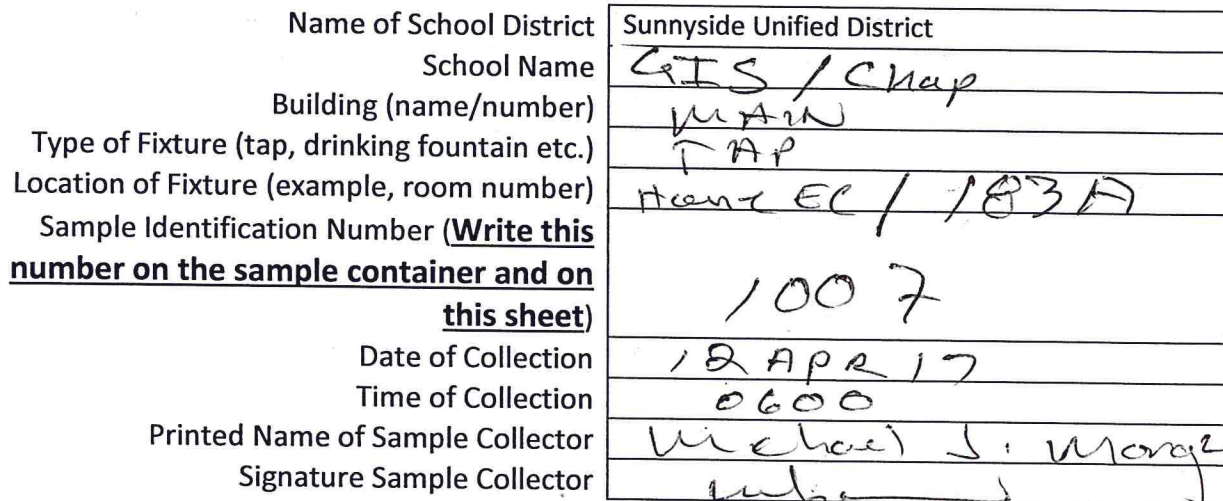 Name of School District Sunnyside Unified District
School Name GIS / Chap
Building (name/number) MAIN
Type of Fixture (tap, drinking fountain etc.) TAP
Location of Fixture (example, room number) Home EC / 183A
Sample Identification Number (Write this
number on the sample container and on
this sheet) 1007
Date of Collection 12 APR 17
Time of Collection 0600
Printed Name of Sample Collector Michael J.
Signature Sample Collector